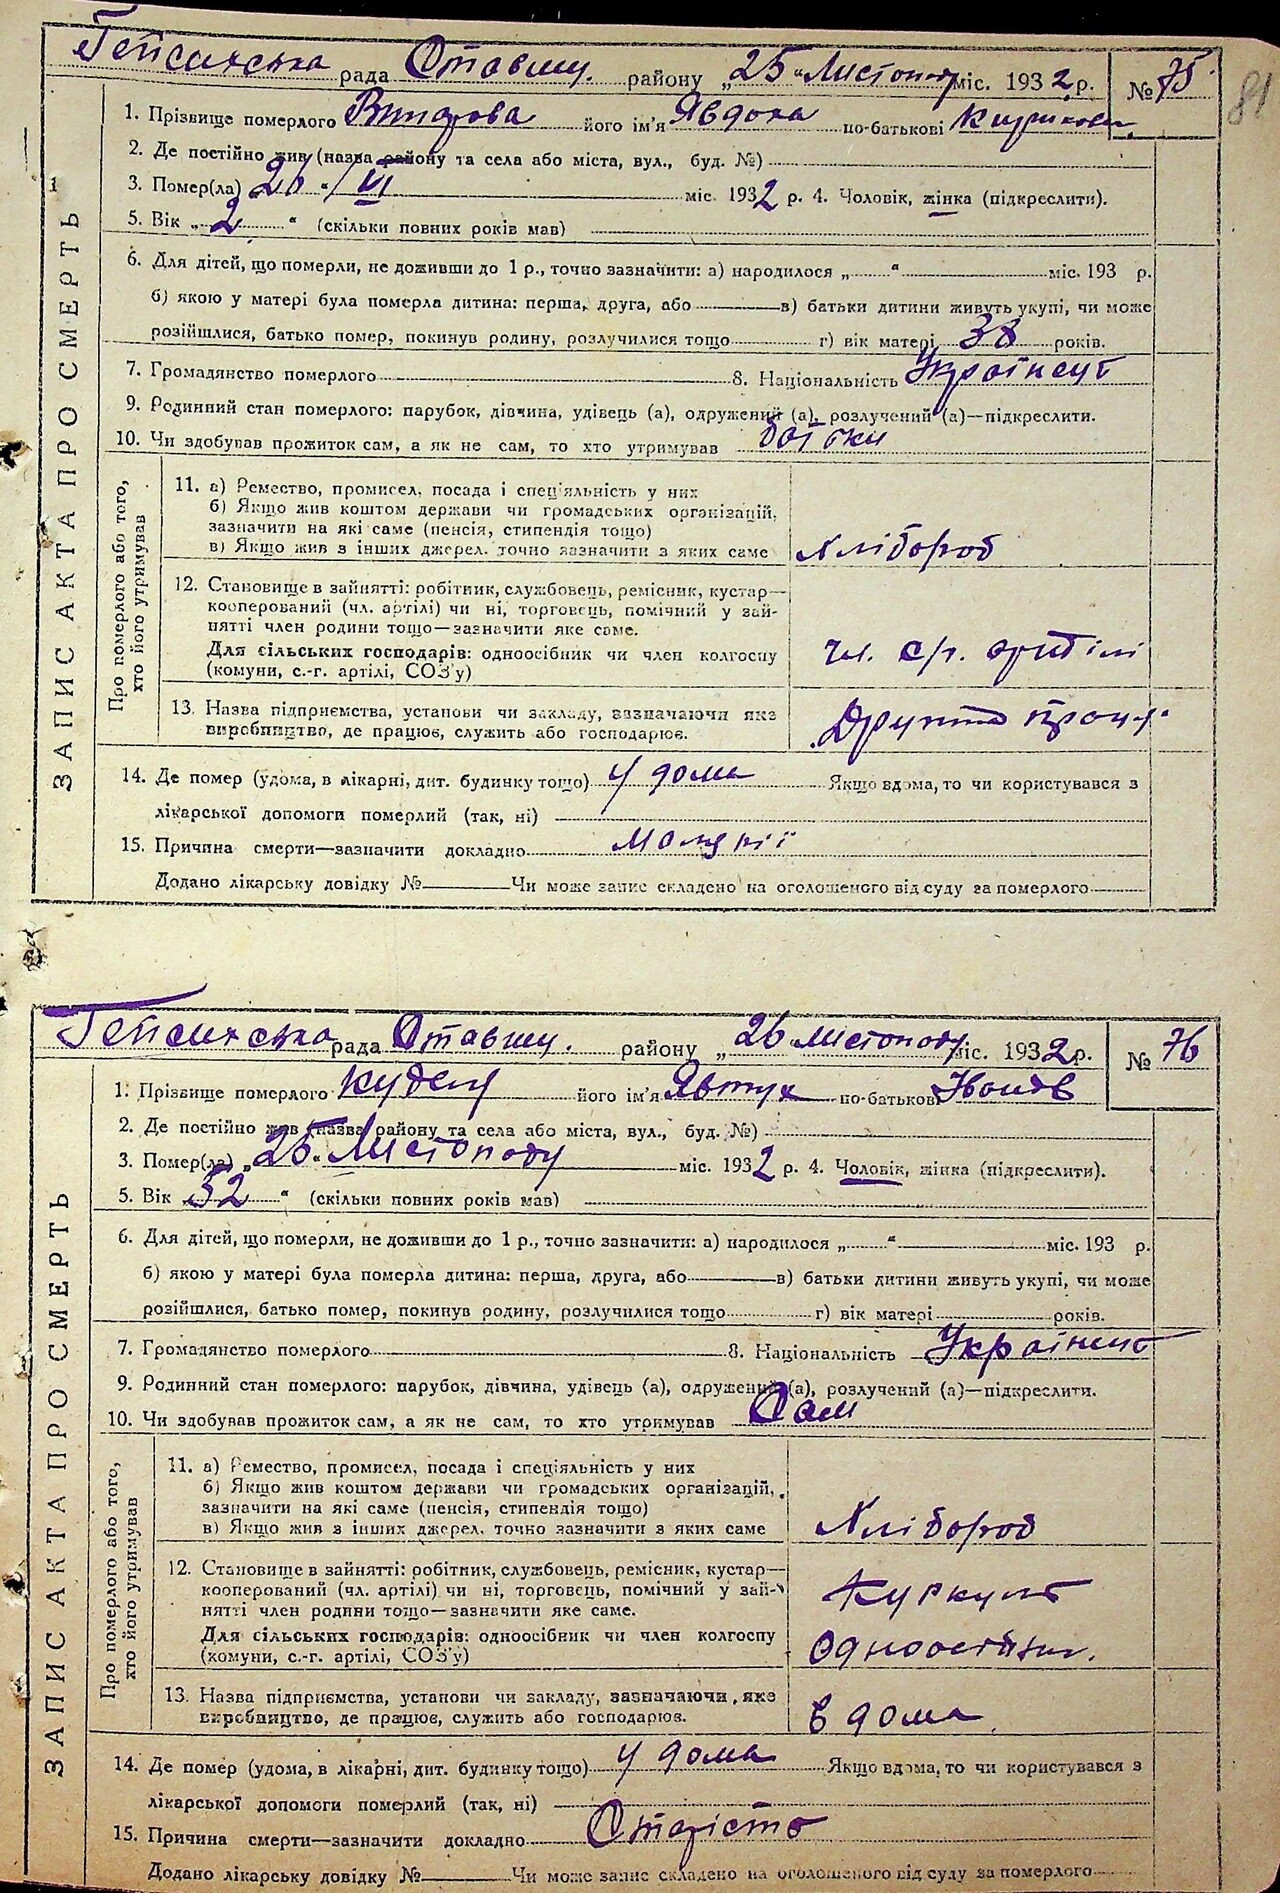 81
Гейсихська рада Ставищ. району „25 “ Листопад міс. 1932 р. № 75
1. Прізвище померлого його ім'я Явдоха по-батькові
2. Де постійно жив (назва району та села або міста, вул., буд. №)
3. Помер(ла) „26 “ / VI міс. 1932 р. 4. Чоловік, жінка (підкреслити).
5. Вік „ 2 “ (скільки повних років мав)
6. Для дітей, що померли, не доживши до 1 р., точно зазначити: а) народилося „ “ міс. 193 р.
б) якою у матері була померла дитина: перша, друга, або в) батьки дитини живуть укупі, чи може
розійшлися, батько помер, покинув родину, розлучилися тощо г) вік матері 38 років.
7. Громадянство померлого 8. Національність Українець
9. Родинний стан померлого: парубок, дівчина, удівець (а), одружений (а), розлучений (а)—підкреслити.
10. Чи здобував прожиток сам, а як не сам, то хто утримував
ЗАПИС АКТА ПРО СМЕРТЬ
Про померлого або того,
хто його утримував
11. а) Ремество, промисел, посада і спеціяльність у них
б) Якщо жив коштом держави чи громадських організацій,
зазначити на які саме (пенсія, стипендія тощо)
в) Якщо жив з інших джерел, точно зазначити з яких саме Хлібороб
12. Становище в зайнятті: робітник, службовець, ремісник, кустар—
кооперований (чл. артілі) чи ні, торговець, помічний у зай-
нятті член родини тощо—зазначити яке саме.
Для сільських господарів: одноосібник чи член колгоспу
(комуни, с.-г. артілі, СОЗ'у) чл. с/г. артілі
13. Назва підприємства, установи чи закладу, зазначаючи яке
виробництво, де працює, служить або господарює.
14. Де помер (удома, в лікарні, дит. будинку тощо) у дома Якщо вдома, то чи користувався з
лікарської допомоги померлий (так, ні)
15. Причина смерти—зазначити докладно
Додано лікарську довідку № Чи може запис складено на оголошеного від суду за померлого
Гейсихська рада Ставищ. району „26 “ Листопаду міс. 1932 р. № 76
1. Прізвище померлого його ім'я Явтух по-батькові
2. Де постійно жив (назва району та села або міста, вул., буд. №)
3. Помер(ла) „ “ Листопаду міс. 1932 р. 4. Чоловік, жінка (підкреслити).
5. Вік 52 “ (скільки повних років мав)
6. Для дітей, що померли, не доживши до 1 р., точно зазначити: а) народилося „ “ міс. 193 р.
б) якою у матері була померла дитина: перша, друга, або в) батьки дитини живуть укупі, чи може
розійшлися, батько помер, покинув родину, розлучилися тощо г) вік матері років.
7. Громадянство померлого 8. Національність Українець
9. Родинний стан померлого: парубок, дівчина, удівець (а), одружений (а), розлучений (а)—підкреслити.
10. Чи здобував прожиток сам, а як не сам, то хто утримував Сам
ЗАПИС АКТА ПРО СМЕРТЬ
Про померлого або того,
хто його утримував
11. а) Ремество, промисел, посада і спеціяльність у них
б) Якщо жив коштом держави чи громадських організацій,
зазначити на які саме (пенсія, стипендія тощо)
в) Якщо жив з інших джерел, точно зазначити з яких саме Хлібороб
12. Становище в зайнятті: робітник, службовець, ремісник, кустар—
кооперований (чл. артілі) чи ні, торговець, помічний у зай- Куркуль
нятті член родини тощо—зазначити яке саме.
Для сільських господарів: одноосібник чи член колгоспу
(комуни, с.-г. артілі, СОЗ'у)
13. Назва підприємства, установи чи закладу, зазначаючи яке
виробництво, де працює, служить або господарює. в дома
14. Де помер (удома, в лікарні, дит. будинку тощо) у дома Якщо вдома, то чи користувався з
лікарської допомоги померлий (так, ні)
15. Причина смерти—зазначити докладно Старість
Додано лікарську довідку № Чи може запис складено на оголошеного від суду за померлого